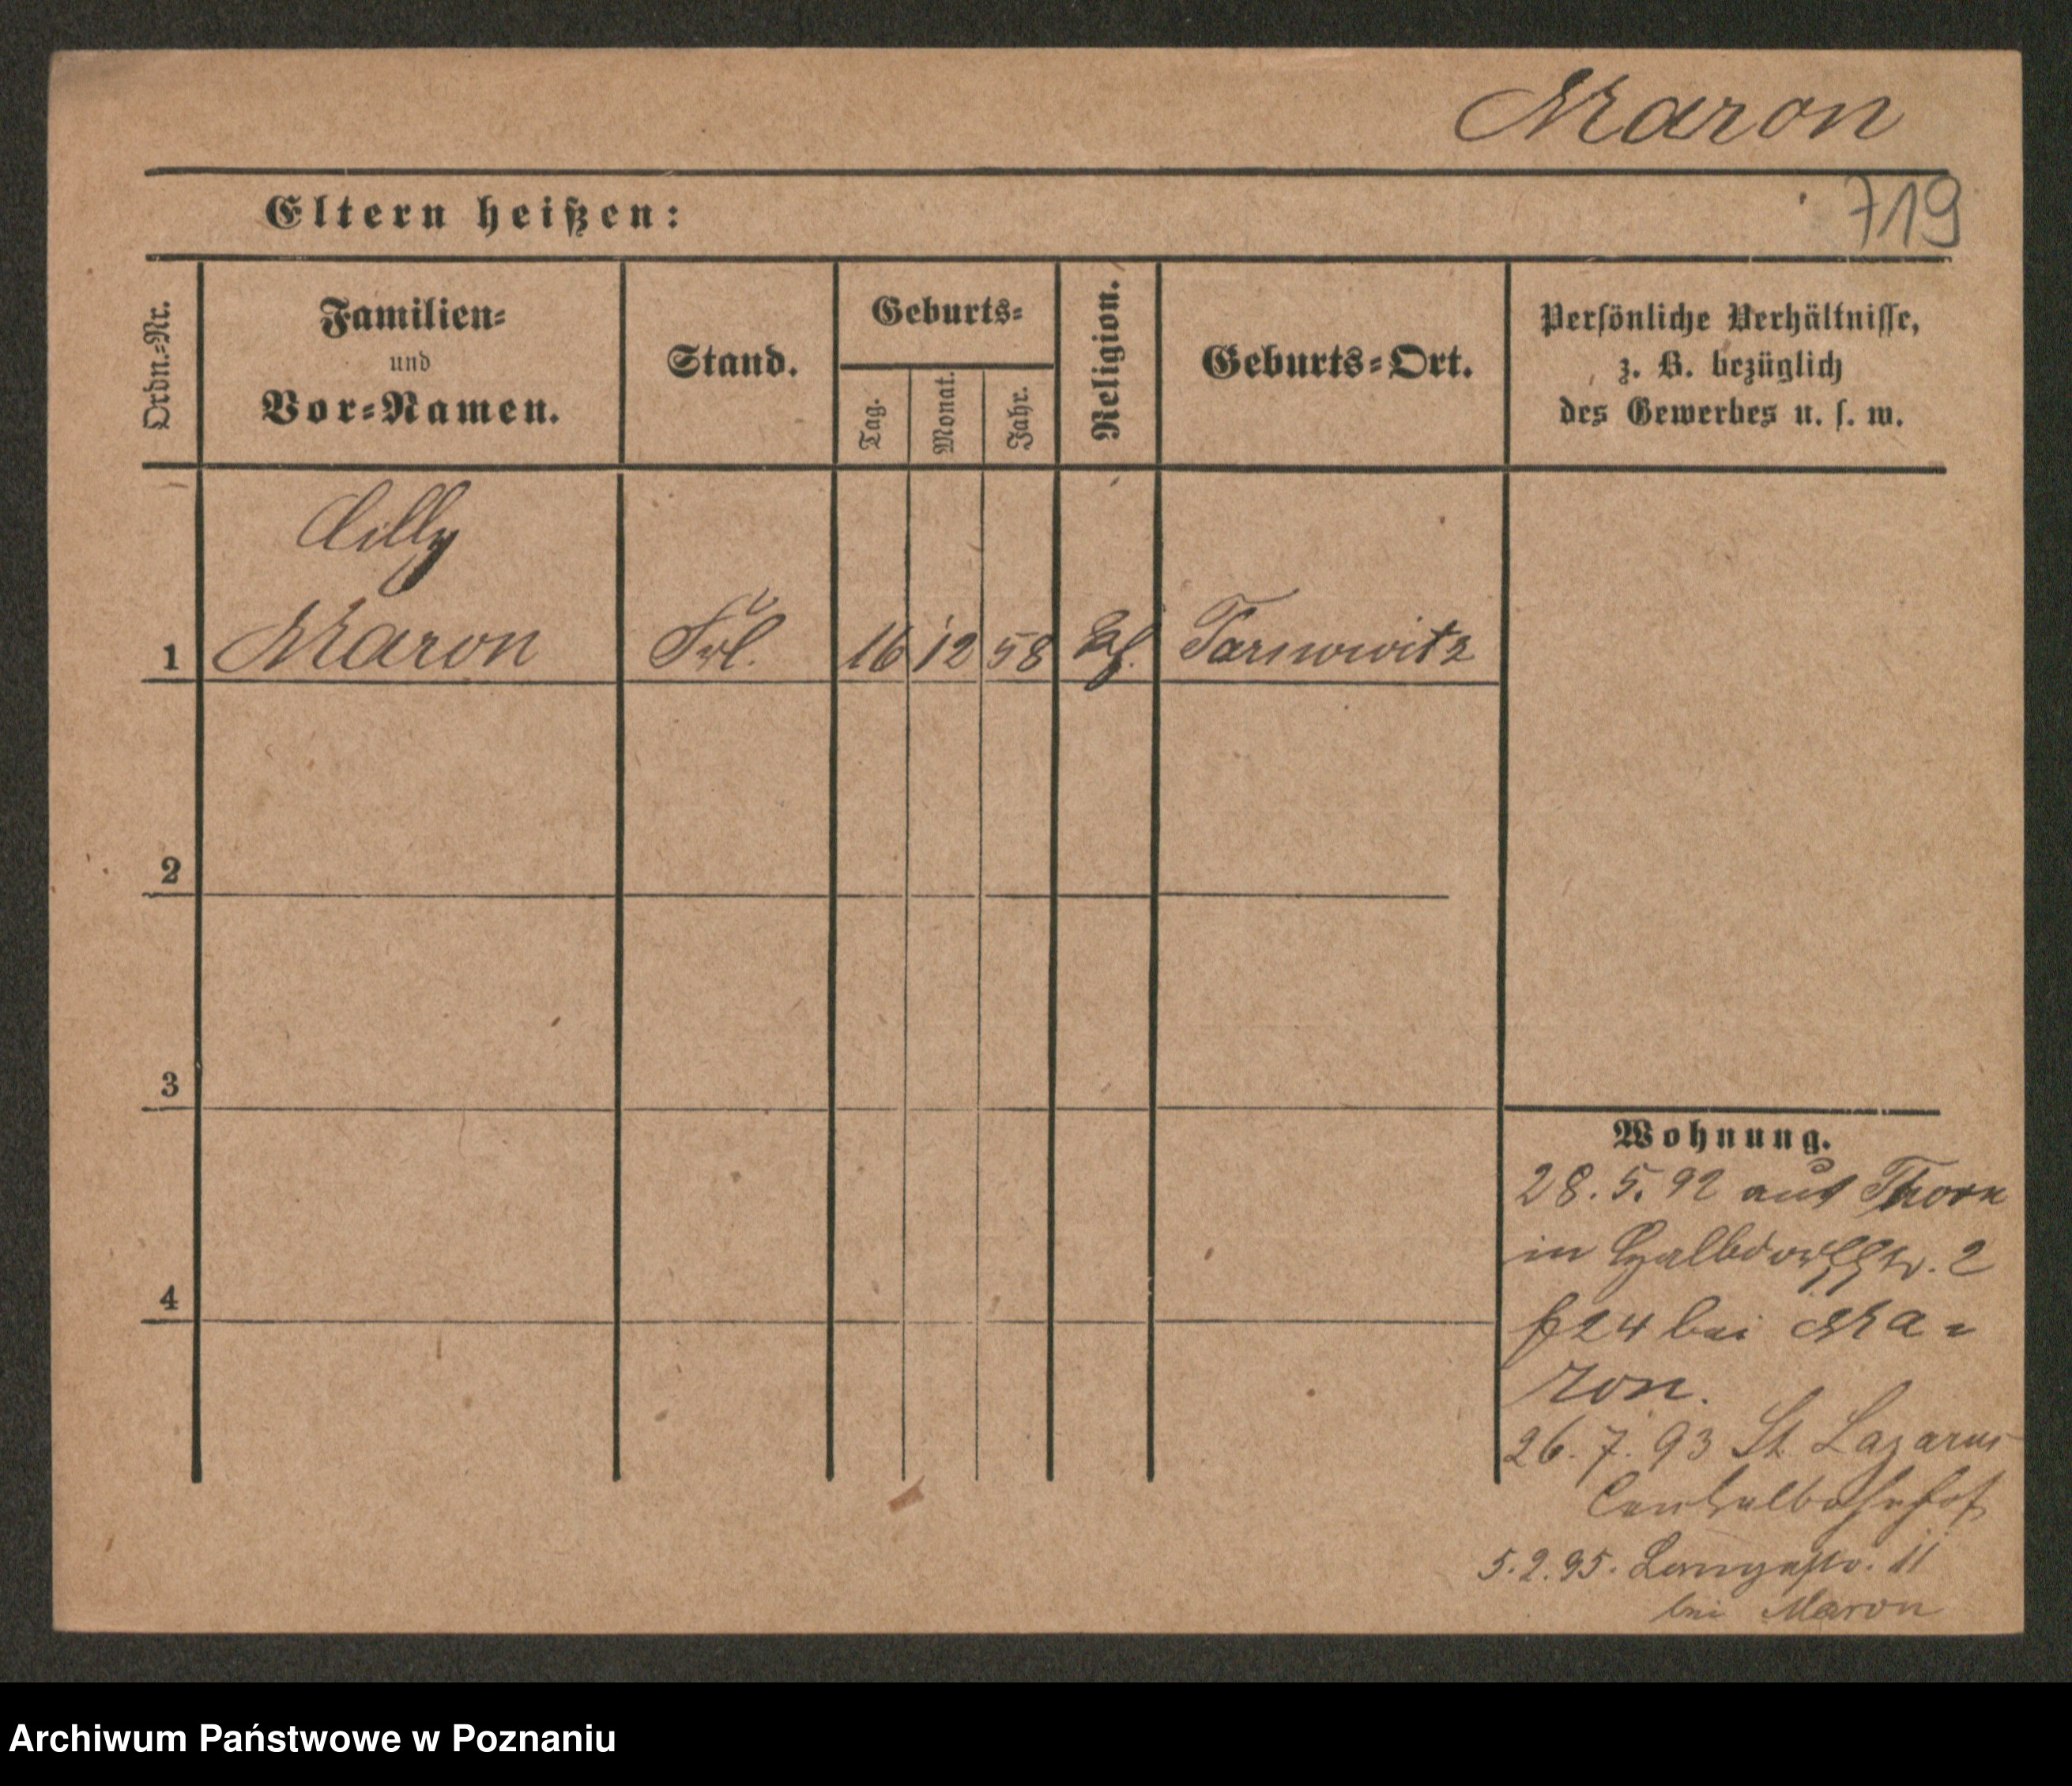 Maron
719
Eltern heißen:
Ordn.-Nr.
Familien-
und
Vor-Namen.
Stand.
Geburts-
Tag.
Monat.
Jahr.
Religion.
Geburts-Ort.
Persönliche Verhältnisse,
z. B. bezüglich
des Gewerbes u. s. w.
Cilly
1 Maron Frl. 16 12 58 Tarnowitz
2
3
4
Wohnung.
28. 5. 92 aus Thorn
in Halbdorffstr. 2
24 bei Ma-
ron.
26. 7. 93 St. Lazarus
Centralbahnhof
5. 2. 95. Langestr. 11
bei Maron
Archiwum Państwowe w Poznaniu